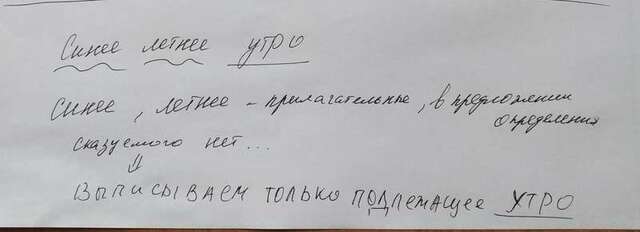 Синее летнее утро
Синее, летнее - прилагательные, в предложении
определения
сказуемого нет...
⇓
ВЫПИСЫВАЕМ ТОЛЬКО ПОДЛЕЖАЩЕЕ УТРО